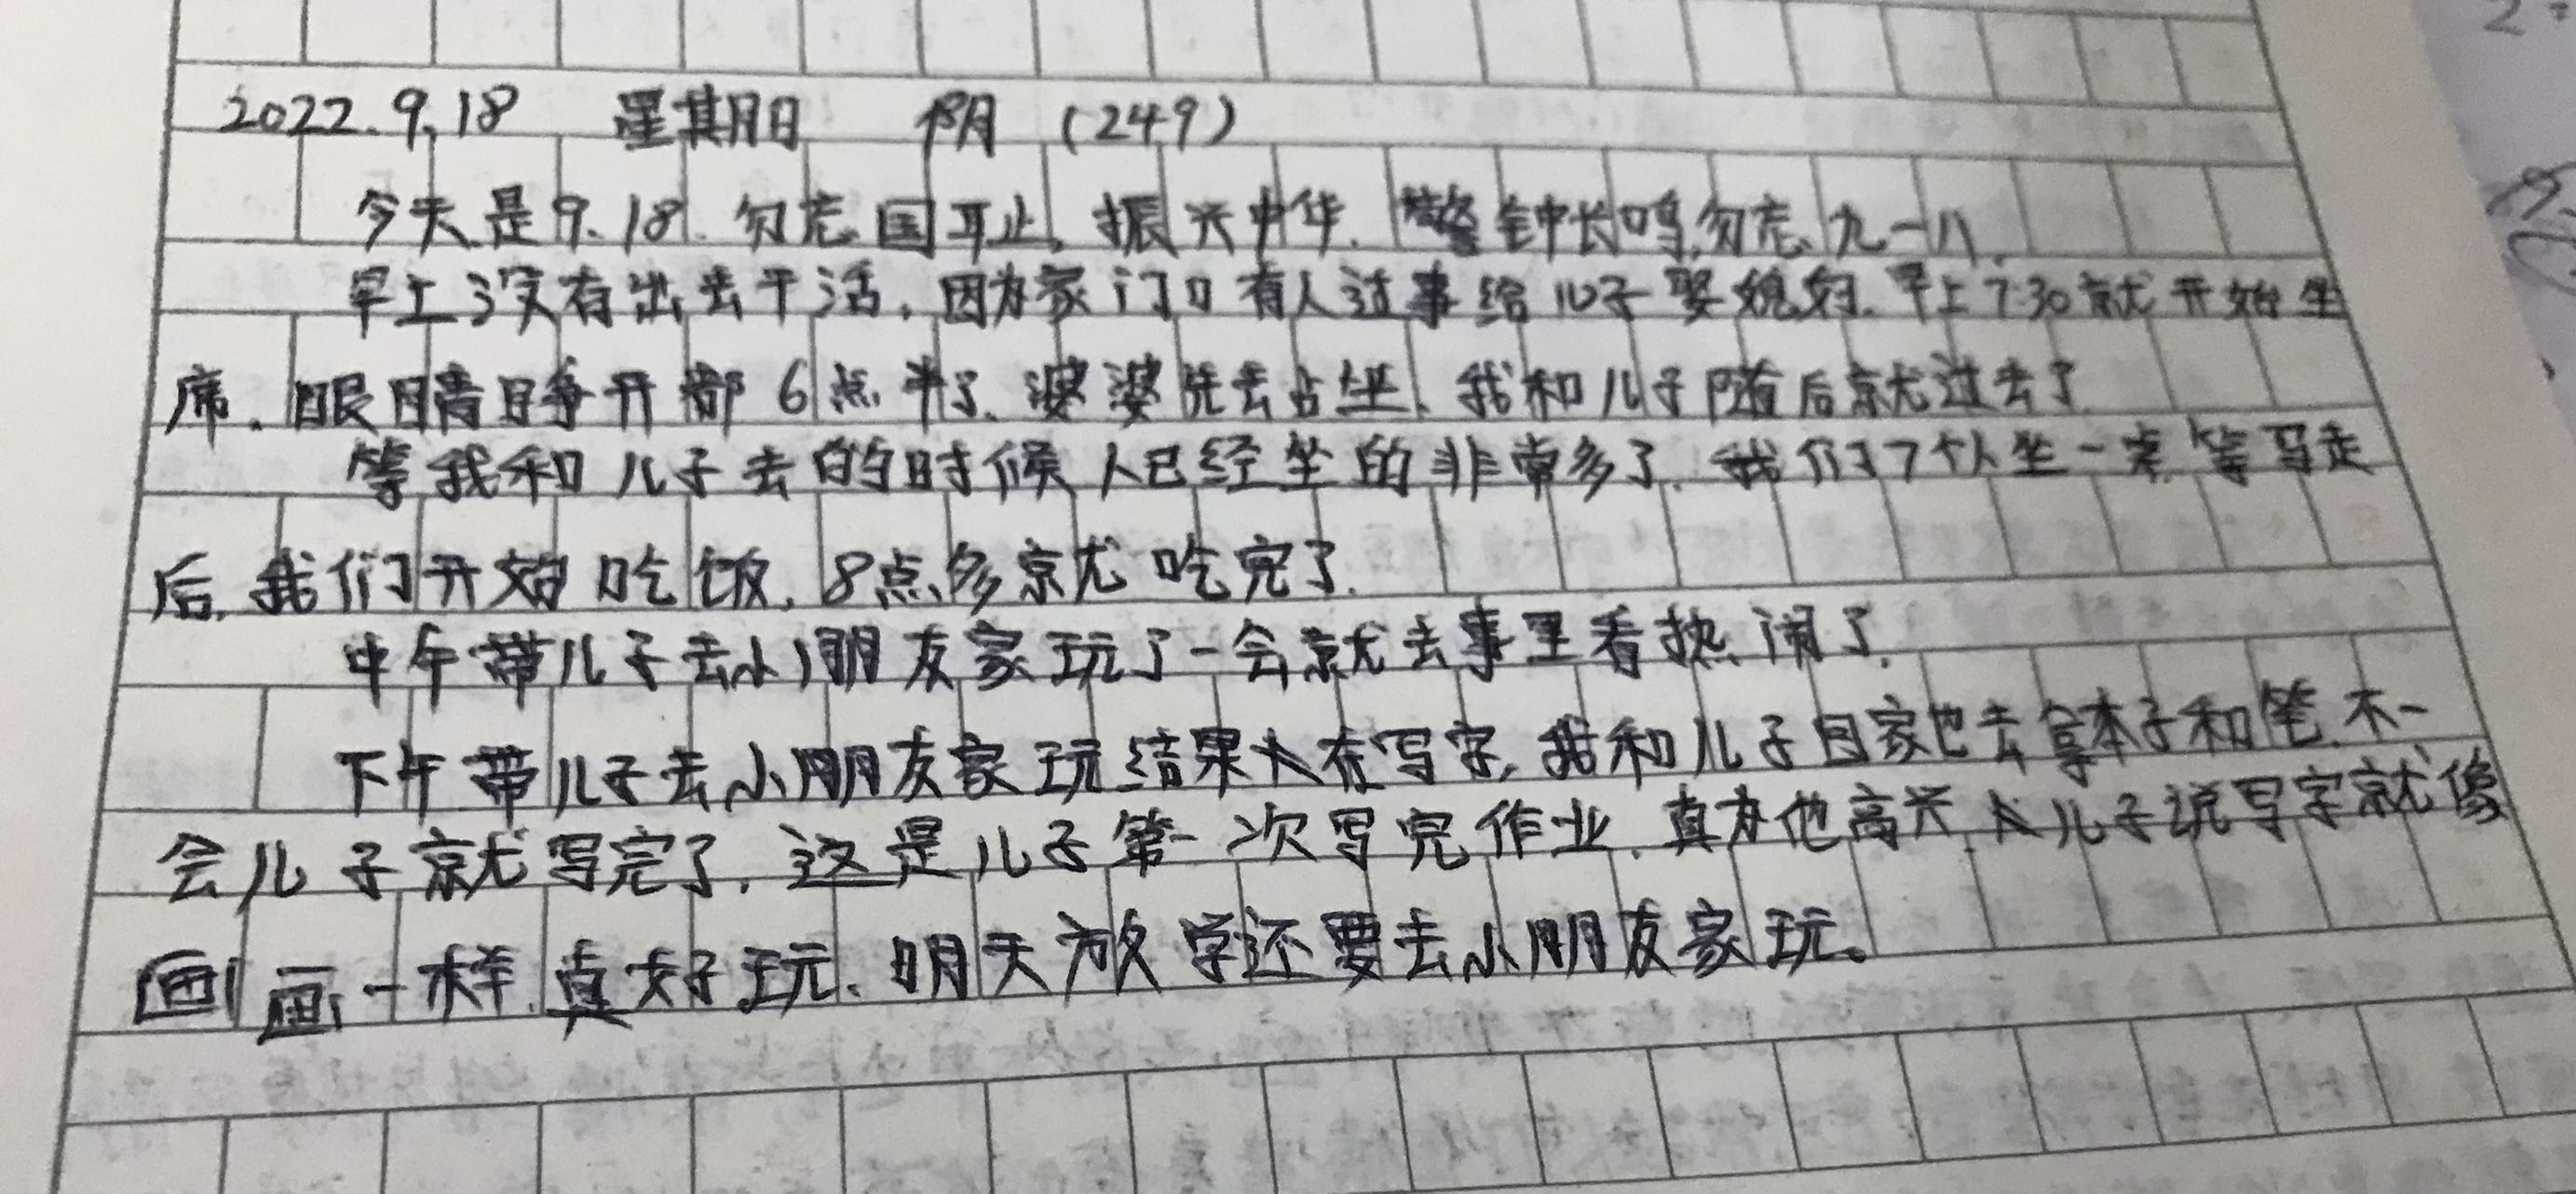 2022.9.18 星期日 阴 (249)
今天是9.18.勿忘国耻,振兴中华.警钟长鸣,勿忘九一八.
早上没有出去干活,因为家门口有人过事给儿子娶媳妇.早上7:30就开始坐
席.眼睛睁开都6点半了.婆婆先去占坐.我和儿子随后就过去了.
等我和儿子去的时候人已经坐的非常多了.我们7个人坐一桌.等写走
后,我们开始吃饭.8点多就吃完了.
中午带儿子去小朋友家玩了一会就去事里看热闹了.
下午带儿子去小朋友家玩结果人在写字,我和儿子回家也去拿本子和笔.不一
会儿子就写完了.这是儿子第一次写完作业.真为他高兴.儿子说写字就像
画画一样.真好玩.明天放学还要去小朋友家玩。